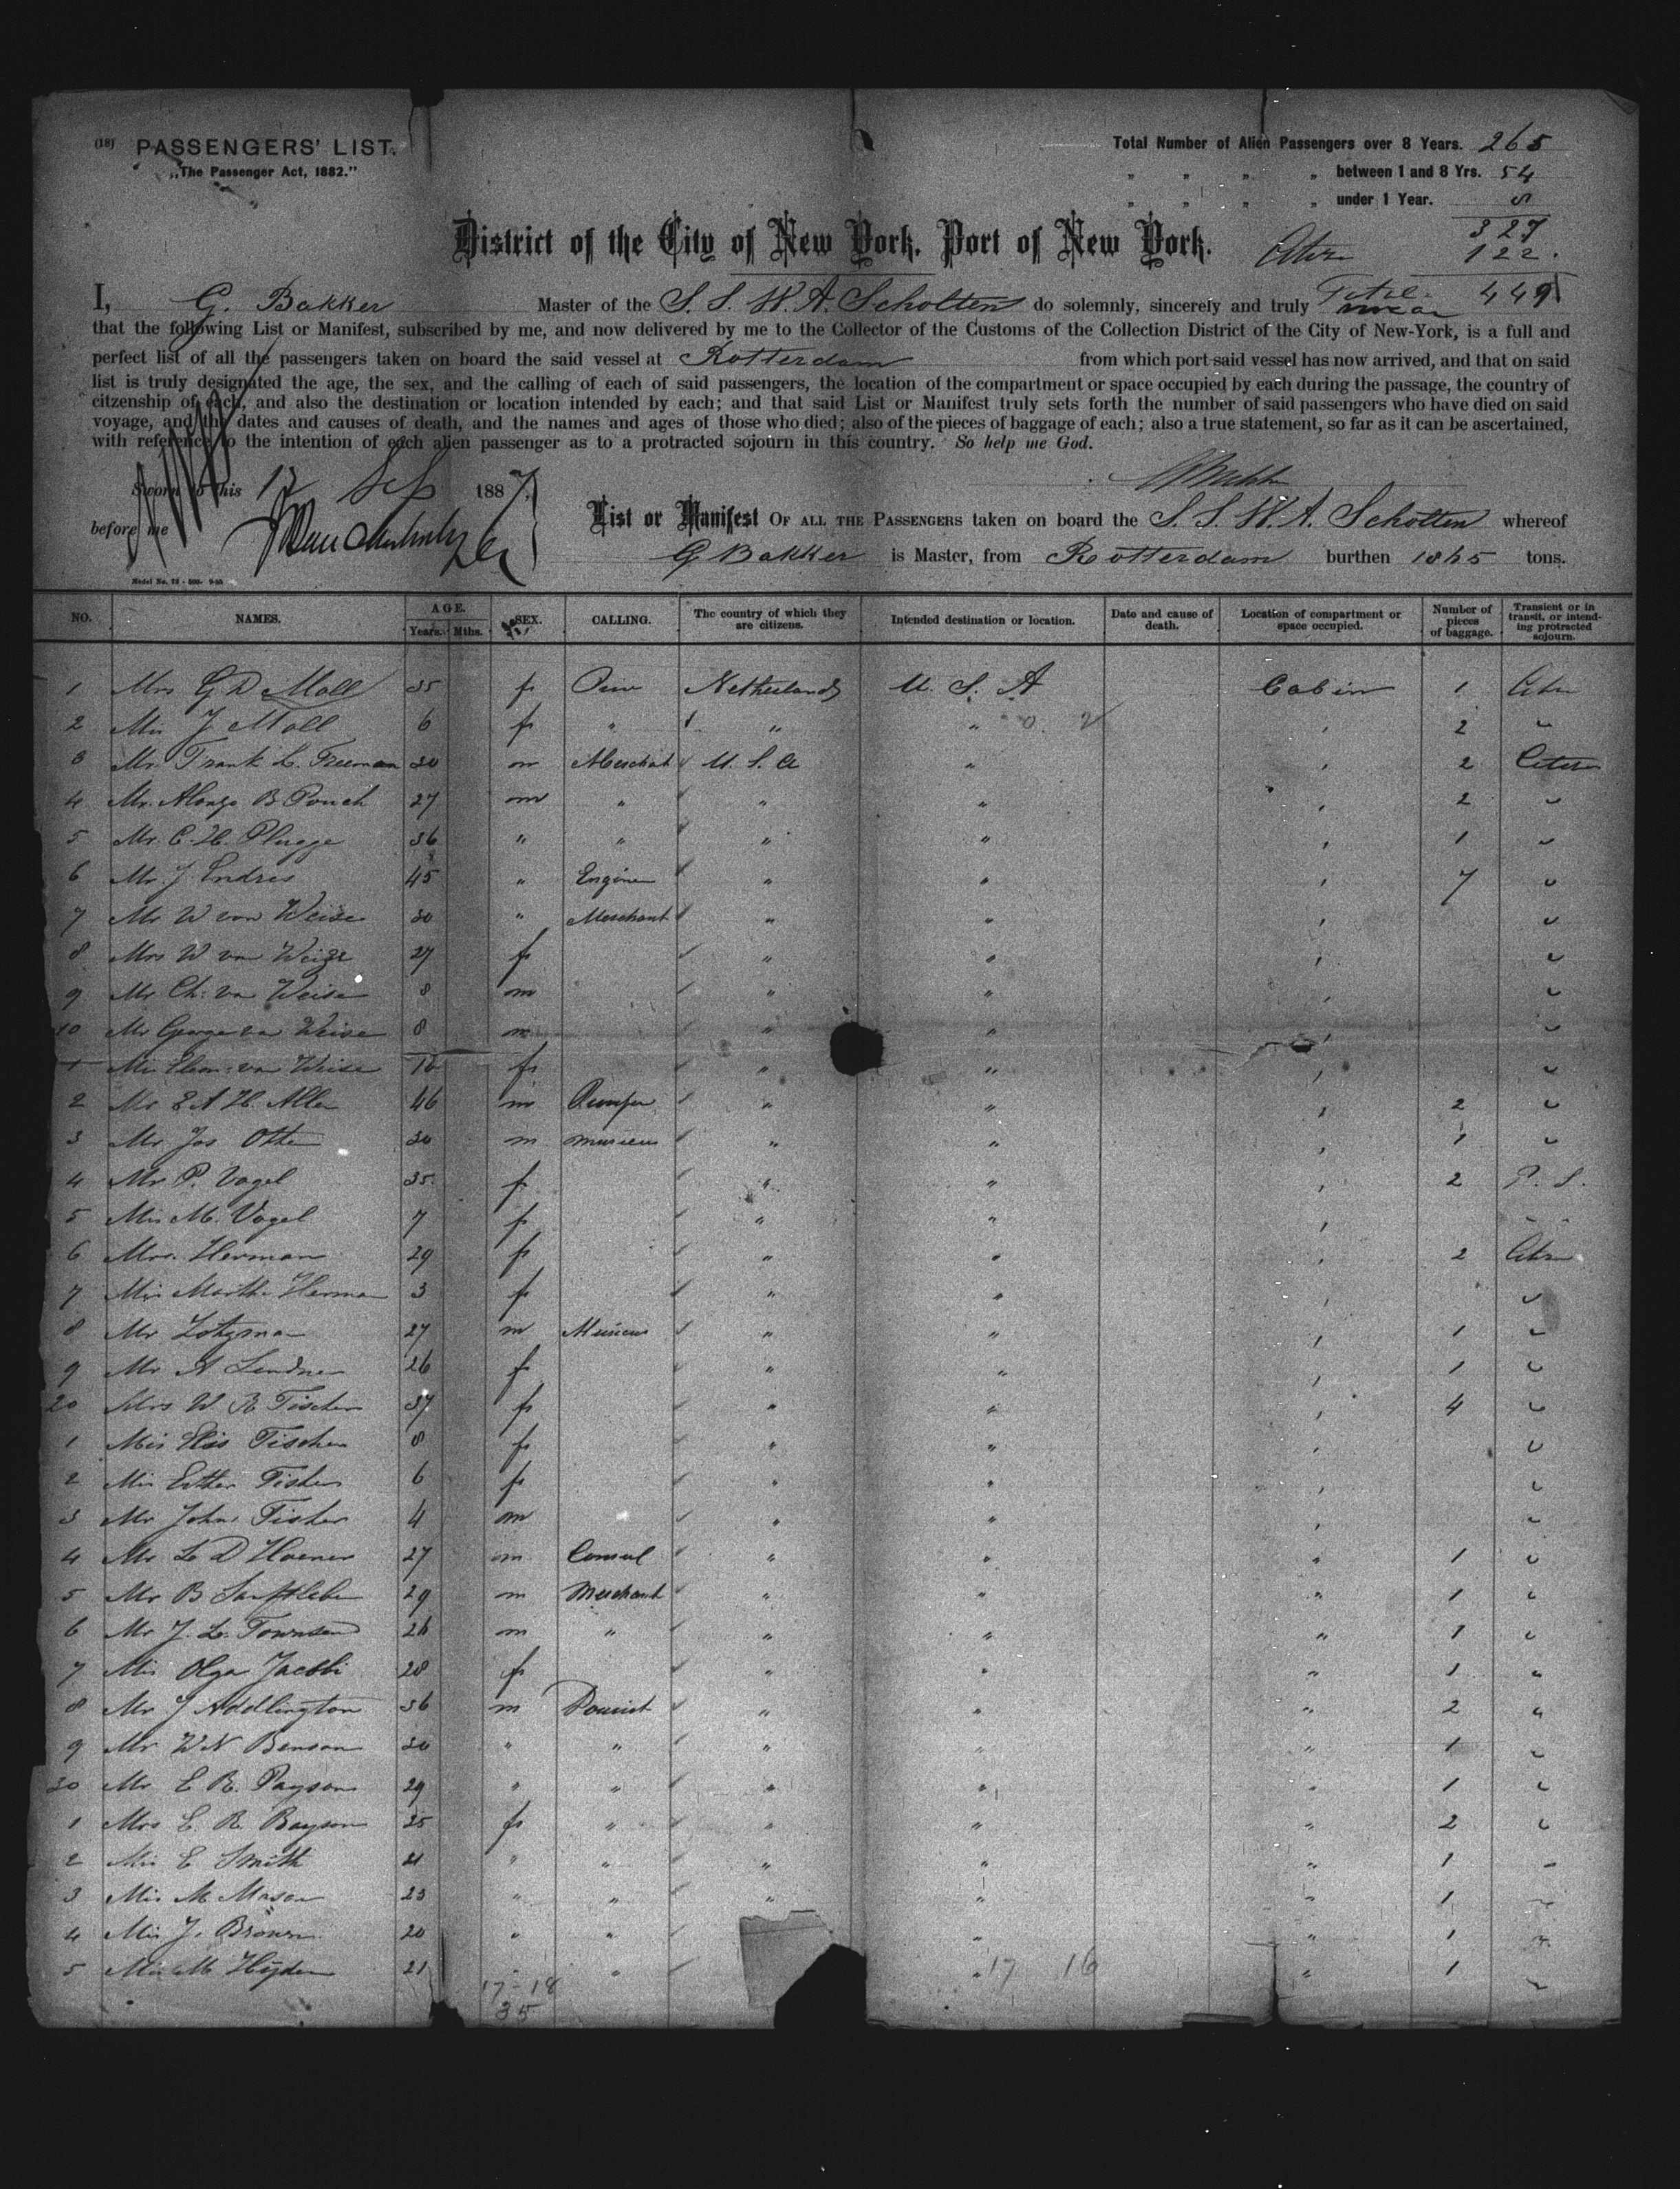 (18) PASSENGERS' LIST.
„The Passenger Act, 1882."
Total Number of Alien Passengers over 8 Years. 265
" " " " between 1 and 8 Yrs. 54
" " " " under 1 Year. 8
327
District of the City of New York, Port of New York. 122.
I, G. Bakker Master of the S. S. W. A. Scholten do solemnly, sincerely and truly swear Total 449
that the following List or Manifest, subscribed by me, and now delivered by me to the Collector of the Customs of the Collection District of the City of New-York, is a full and
perfect list of all the passengers taken on board the said vessel at Rotterdam from which port said vessel has now arrived, and that on said
list is truly designated the age, the sex, and the calling of each of said passengers, the location of the compartment or space occupied by each during the passage, the country of
citzenship of each, and also the destination or location intended by each; and that said List or Manifest truly sets forth the number of said passengers who have died on said
voyage, and the dates and causes of death, and the names and ages of those who died; also of the pieces of baggage of each; also a true statement, so far as it can be ascertained,
with reference to the intention of each alien passenger as to a protracted sojourn in this country. So help me God.
Sworn to this 12 Sep 1887,
before me
List or Manifest OF ALL THE PASSENGERS taken on board the S. S. W. A. Scholten whereof
G Bakker is Master, from Rotterdam burthen tons.
NO. NAMES. AGE. Years. Mths. SEX. CALLING. The country of which they are citizens. Intended destination or location. Date and cause of death. Location of compartment or space occupied. Number of pieces of baggage. Transient or in transit, or intending protracted sojourn.
1 Mrs G D Moll 35 f Netherlands U. S. A Cabin 1
2 J Moll 6 f " " " 2
3 Mr. Frank L. Freeman 30 m Merchant U. S. A " 2
4 Mr. Alonzo B Pouch 27 m " " " 2
5 Mr. C. H. Plugge 36 " " " " 1
6 Mr. J. Endres 45 " " " 7
7 Mr W von Weise 30 " Merchant " "
8 Mrs W von Weise 27 f " "
9 Mr Ch: von Weise 8 m " "
10 Mr George von Weise 8 m " "
1 von Weise f " "
2 Mr E A H. Allen 46 m " " 2
3 Mr. Jos Otten 30 m " " 1
4 P. Vogel 35 f " " 2 P. S.
5 Mis M. Vogel 7 f " "
6 Mrs. Herman 29 f " " 2
7 Mis Martha Herman 3 f " "
8 Mr 27 m " " 1
9 A Lindner 26 f " " 1
20 Mrs W R Fischer 37 f " " 4
1 Mis Fischer 8 f " "
2 Mis Esther Fisher 6 f " "
3 Mr John Fisher 4 m " "
4 Mr L D 27 m Consul " " " 1
5 Mr B 29 m Merchant " " " 1
6 Mr J. L. Townsend 26 m " " " " 1
7 Mis Olga Jacobi 28 f " " " 1
8 Mr J Addlington 36 m " " " 2
9 Mr W N Benson 30 " " " " " 1
30 Mr E R. Payson 29 " " " " " 1
1 Mrs E. R. Bayson 25 f " " " " 2
2 Mis E Smith 21 " " " " " 1
3 Mis M Mason 23 " " " " " 1
4 Mis J. Brown 20 " " " " 1
5 Mis M Hyden 21 " " " " 1
17 - 18 17 16
35